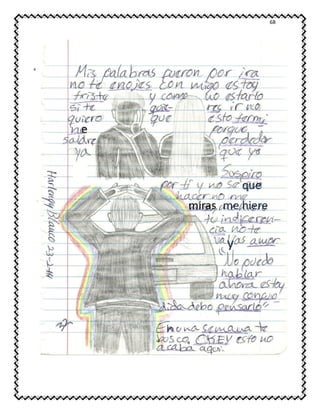 68
Mis palabras fueron por ira
no te enojes con migo estoy
triste y como no estarlo
si te quie- res ir no
quiero que esto termi
ne porque
saldre perdedor
ya que yo
suspiro
por ti y no se que
hacer no me
miras me hiere
tu indiceren-
cia no te
vallas amor
y
No puedo
hablar
ahora estoy
muy
dido debo pensarlo"
En una semana te
busco, OKEY esto no
acaba aqui.
Harlengy Blanco 23-2-14